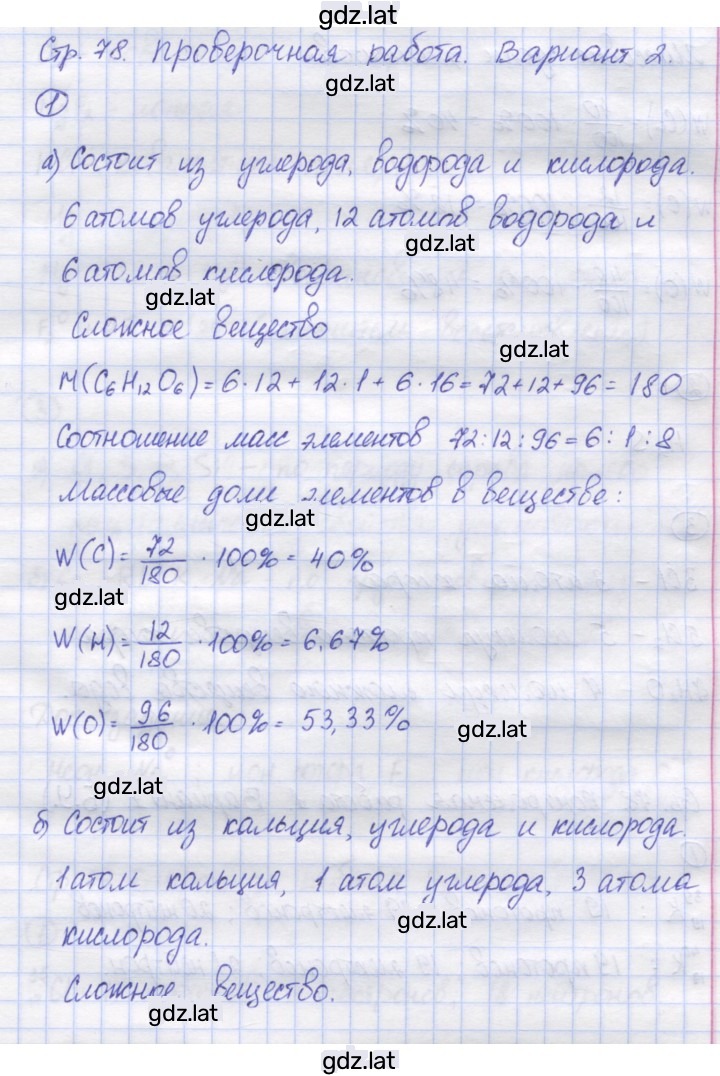 gdz.lat
Стр. 78. Проверочная работа. Вариант 2.
gdz.lat
1
а) Состоит из углерода, водорода и кислорода.
6 атомов углерода, 12 атомов водорода и
gdz.lat
6 атомов кислорода.
gdz.lat
Сложное вещество
gdz.lat
M(C₆H₁₂O₆) = 6·12 + 12·1 + 6·16 = 72+12+96 = 180
Соотношение масс элементов 72:12:96 = 6:1:8
Массовые доли элементов в веществе:
gdz.lat
W(C) = 72/180 · 100% = 40%
gdz.lat
W(H) = 12/180 · 100% = 6.67%
W(O) = 96/180 · 100% = 53,33%
gdz.lat
gdz.lat
б) Состоит из кальция, углерода и кислорода.
1 атом кальция, 1 атом углерода, 3 атома
gdz.lat
кислорода.
Сложное вещество.
gdz.lat
gdz.lat